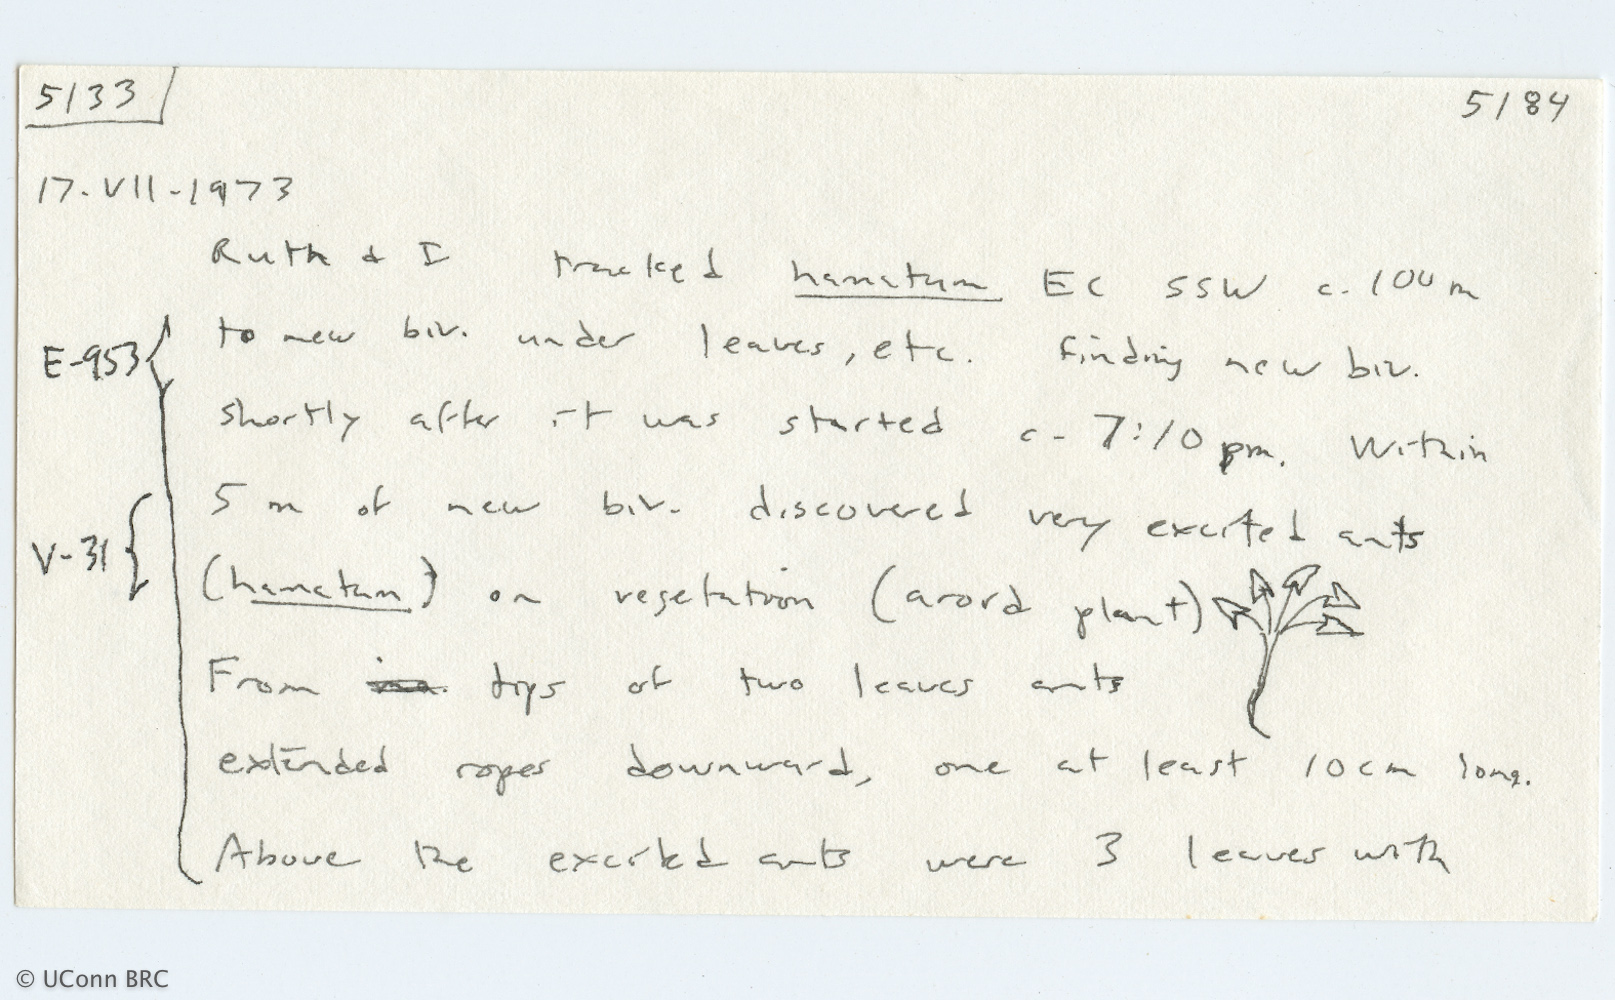 5133
5184
17-VII-1973
Ruth & I tracked hamatum EC SSW c. 100 m
E-953
to new biv. under leaves, etc. Finding new biv.
shortly after it was started c- 7:10 pm. Within
5 m of new biv. discovered very excited ants
V-31
(hamatum) on vegetation (aroid plant)
From tips of two leaves ants
extended ropes downward, one at least 10cm long.
Above the excited ants were 3 leaves with
© UConn BRC